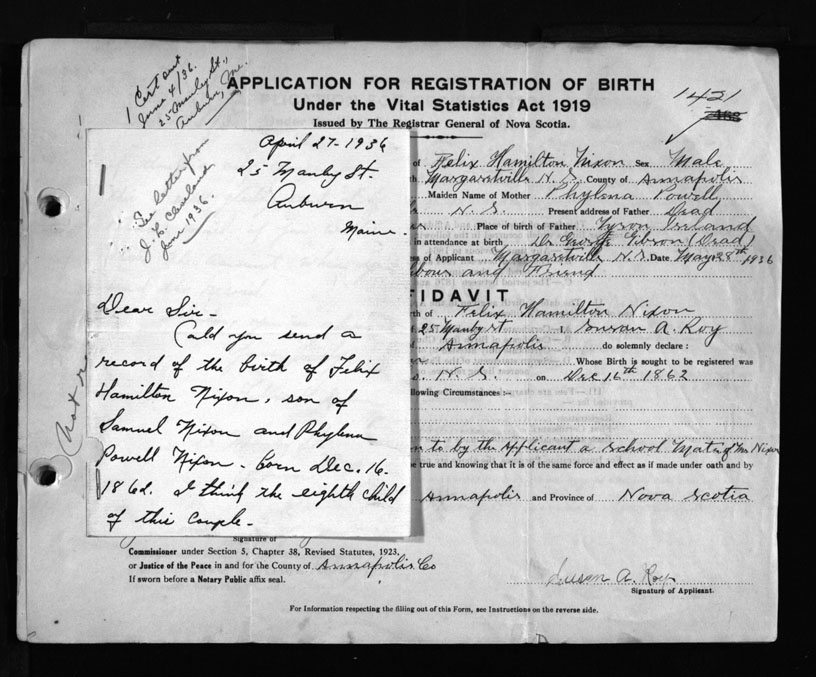 1 Cert out
June 4/36.
25 Manley St.,
Auburn, Me.
APPLICATION FOR REGISTRATION OF BIRTH
Under the Vital Statistics Act 1919
Issued by The Registrar General of Nova Scotia.
1421
See letter from
J. L. Cleveland
June 1936.
April 27-1936
25 Manby St.
Auburn
Maine.
Dear Sir-
Could you send a
record of the birth of Felix
Hamilton Nixon, son of
Samuel Nixon and Phylena
Powell Nixon - born Dec. 16-
1862. I think the eighth child
of this couple-
of Felix Hamilton Nixon Sex Male
Margaretville N.S. County of Annapolis
Maiden Name of Mother Phylena Powell
N.S. Present address of Father Dead
Place of birth of Father Tyron Ireland
in attendance at birth Dr George Gibson (Dead)
of Applicant Margaretville N.S. Date May 28th 1936
and Friend
FIDAVIT
of Felix Hamilton Nixon
of 25 Manby St I, Susan A. Roy
of Annapolis do solemnly declare:
Whose Birth is sought to be registered was
N.S. on Dec 16th 1862
llowing Circumstances:-
to by the applicant a school mate of Mr Nixon
be true and knowing that it is of the same force and effect as if made under oath and by
Annapolis and Province of Nova Scotia
not
Signature of
Commissioner under Section 5, Chapter 38, Revised Statutes, 1923,
or Justice of the Peace in and for the County of Annapolis Co
If sworn before a Notary Public affix seal.
Susan A. Roy
Signature of Applicant.
For Information respecting the filling out of this Form, see Instructions on the reverse side.